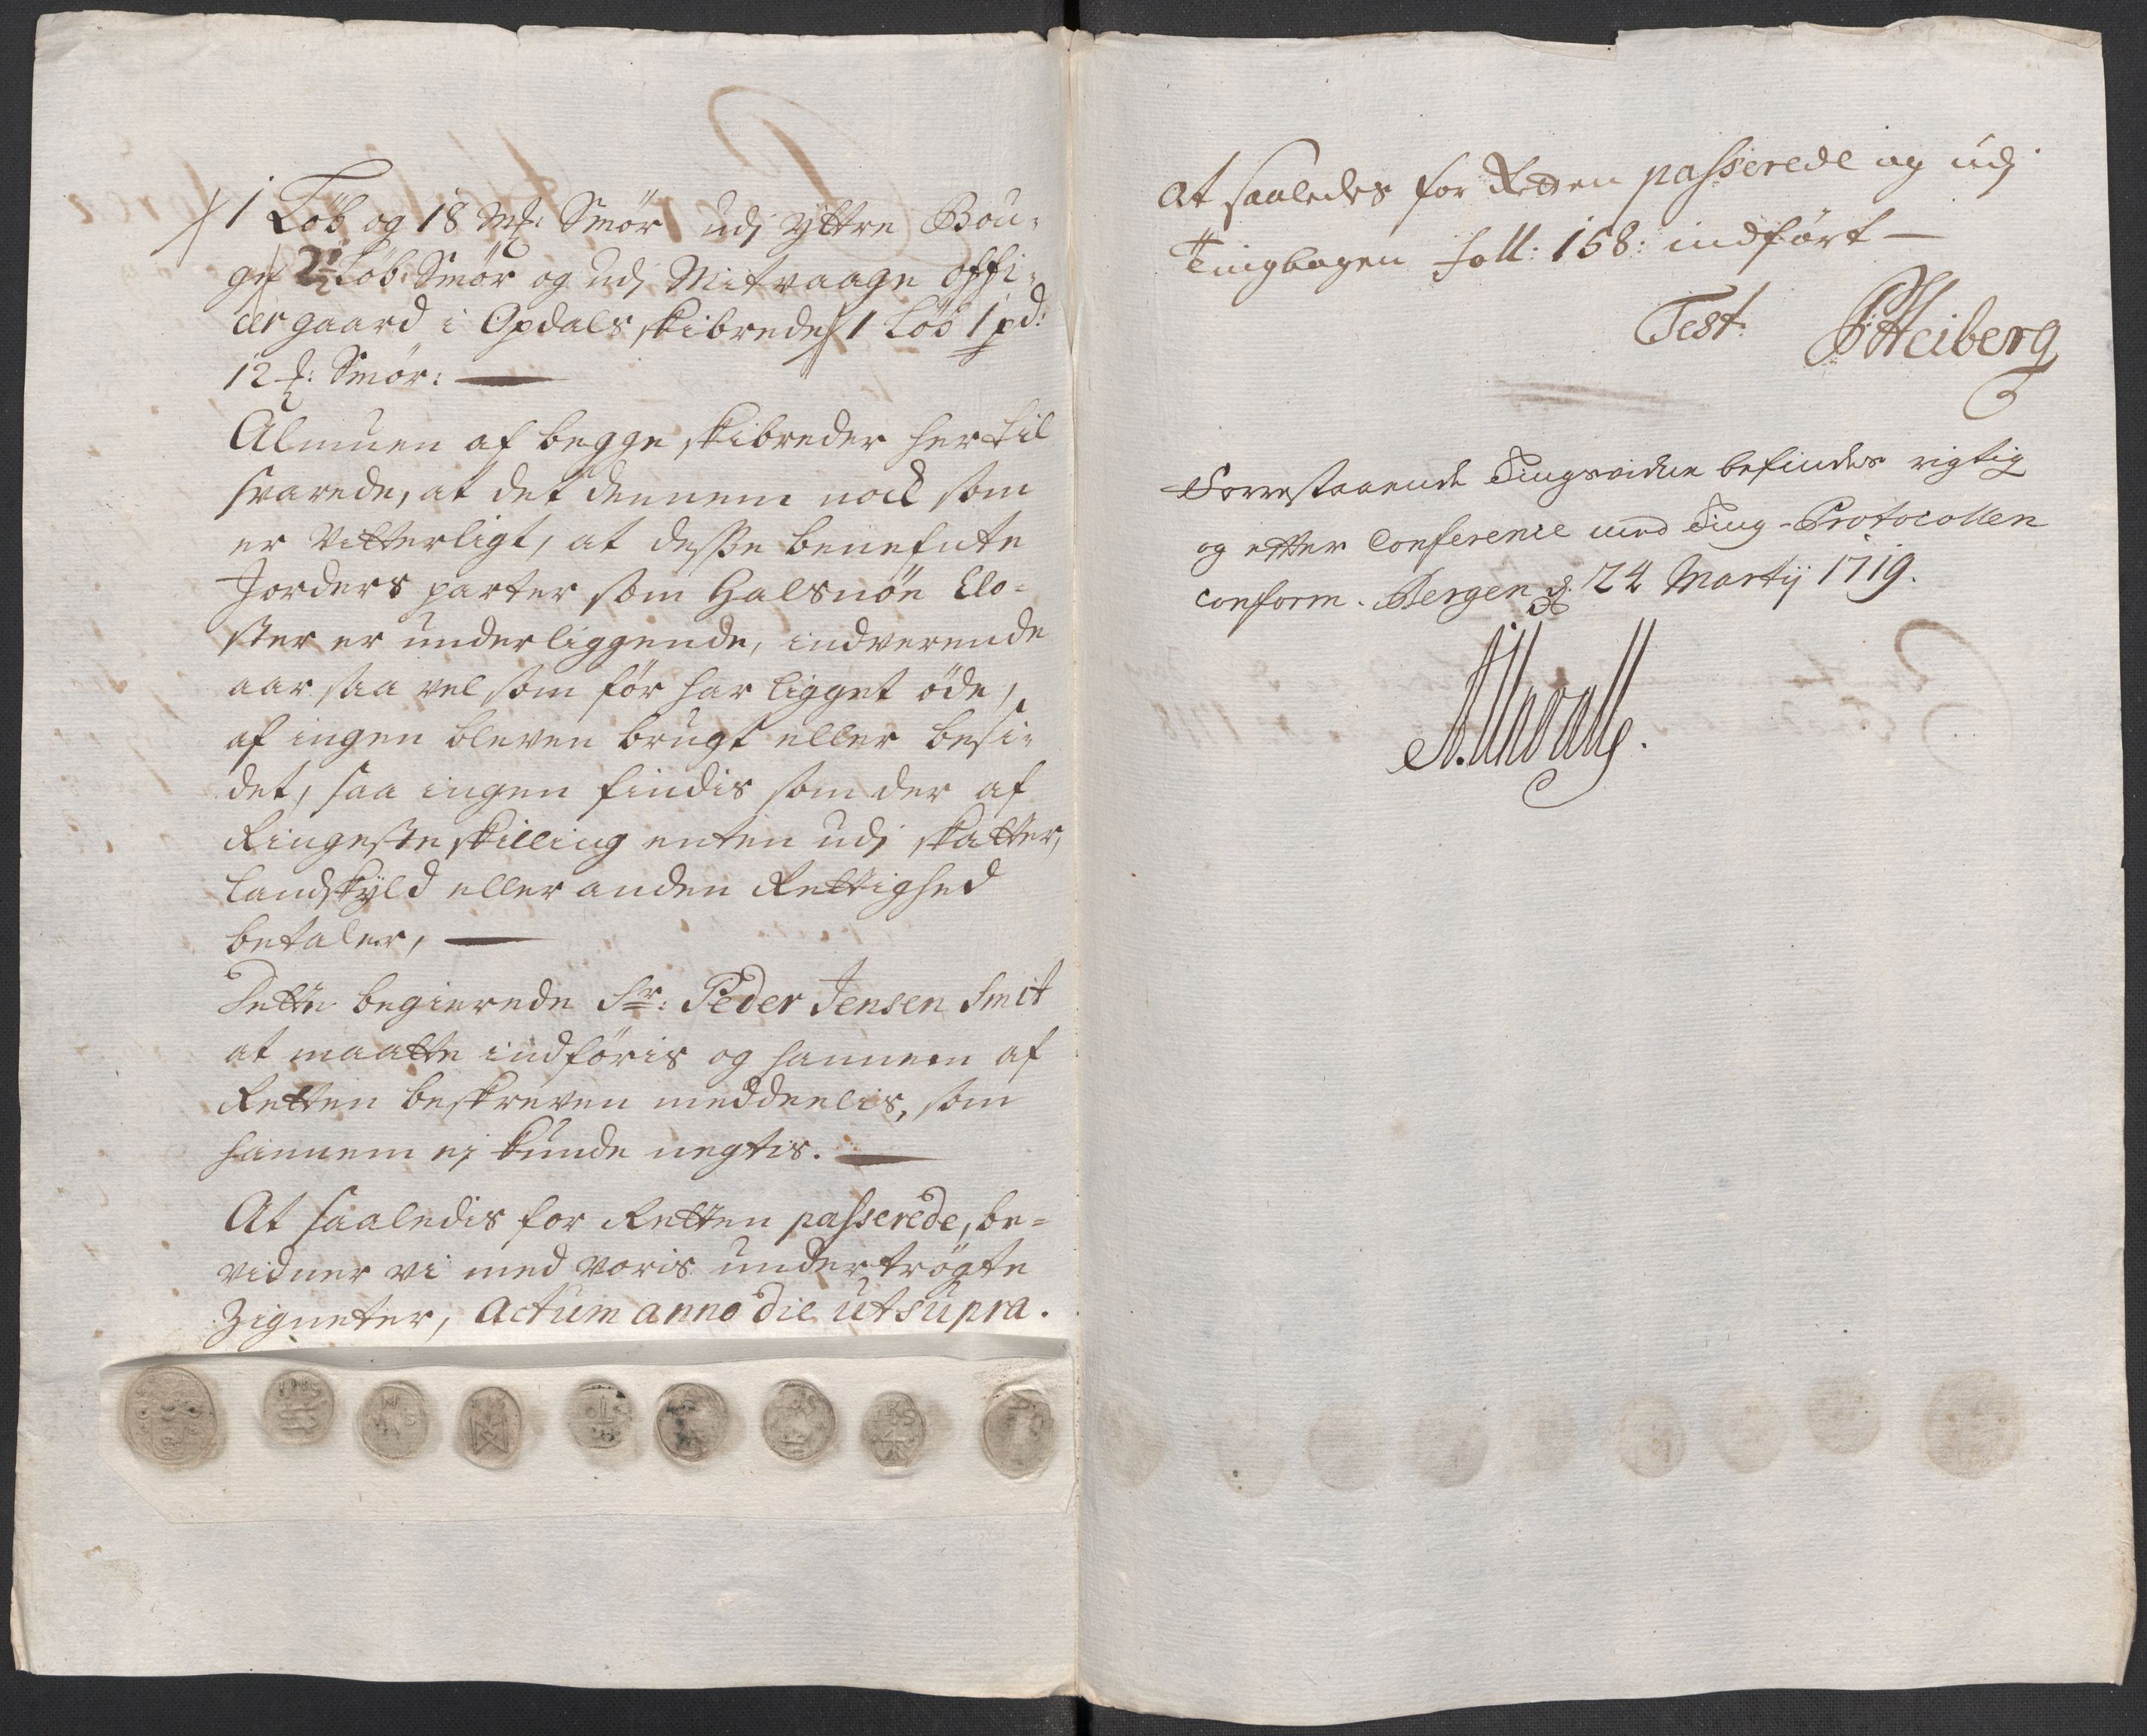 1 Löb og 18 mk: Smör udj Yttre Bou-
ge 2½ Löb: Smör og udj Mitvaage offi-
cer gaard i Opdals skibrede 1 Löb 1 pd:
12 : Smör:
Almuen af begge skibreder hertil
svarede, at det dennem nock som
er vitterligt, at desse benefnte
Jorders parter som Halsnöe Clo-
ster er underliggende, indverende
aar saa vel som för har ligget öde,
af ingen bleven brugt eller besi-
det, saa ingen findis som der af
Ringeste skilling enten udj skatter,
Landskyld eller anden Rettighed
betaler,
Dette begierede Sr: Peder Jensen Smit
at maatte indföris og hannem af
Retten beskreven meddeelis, som
hannem ej kunde negtis.
At saaledis for Retten passerede, be-
vidner vi med voris undertrögte
Zigneter, Actum anno die ut supra.
At saaledes for Retten passerede og udj
Tingbogen foll: 158: indfört
Test: Heiberg
Forrestaaende Tingsvidne befindes rigtig
og efter Conference med Ting-Protocollen
conform. Bergen d. 24 Martij 1719.